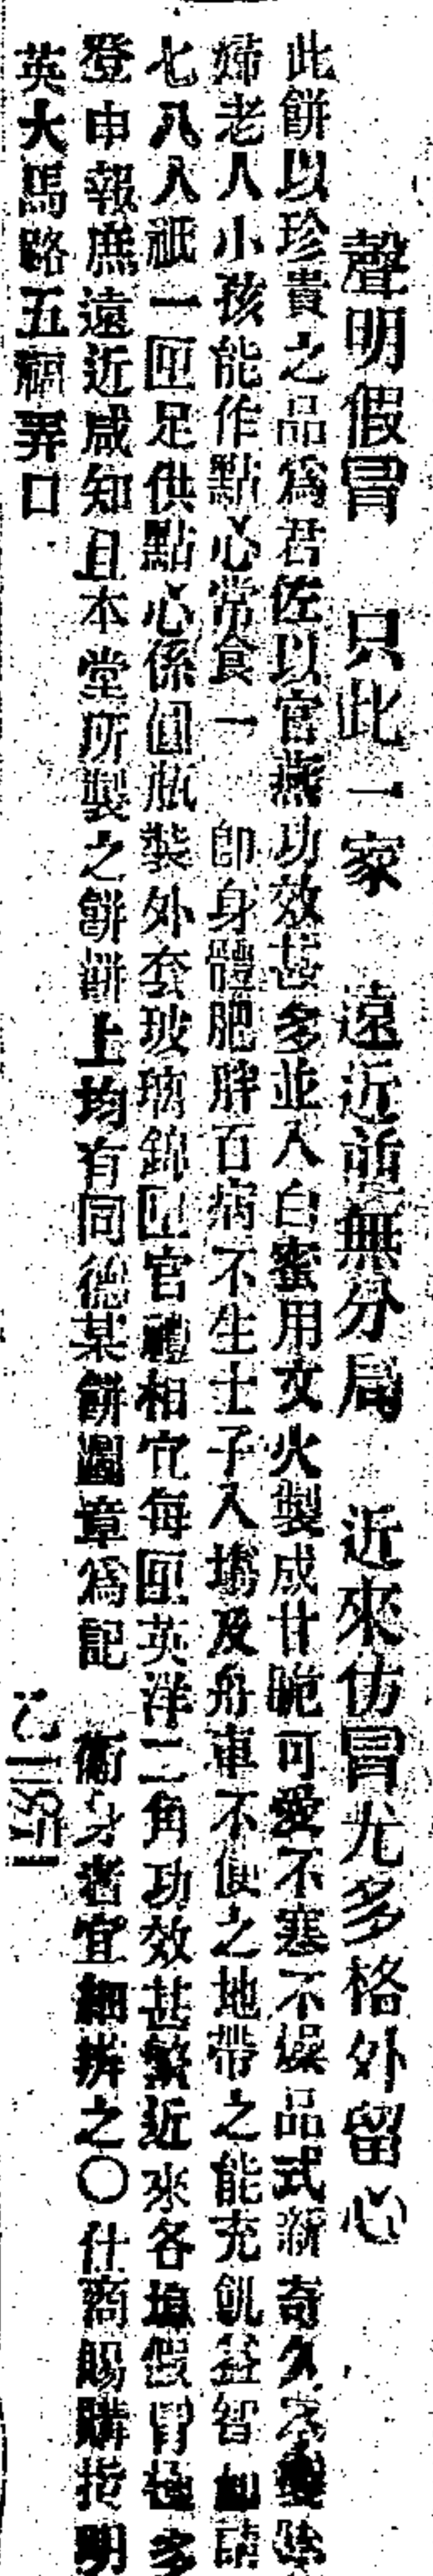 聲明假冒 只此一家 遠近並無分局 近來仿冒尤多格外留心
此餅以珍貴之品爲君佐以官燕功效甚多並入白蜜用文火製成甘脆可愛不寒不燥品式新奇久不變味
婦老人小孩能作點心常食一 即身體肥胖百病不生士子入場及舟車不便之地帶之能充飢益智如請
七八人祇一匣足供點心係圓瓶裝外套玻璃錦匣官禮相宜每匣英洋二角功效甚繁近來各埠假冒極多
登申報庶遠近咸知且本堂所製之餅餅上均有同德某餅圖章爲記 衛身者宜細辨之〇仕商賜購指明
英大馬路五福弄口